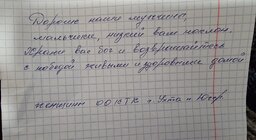 Дорогие наши мужчины,
мальчики, низкий вам поклон.
Храни вас бог и возвращайтесь
с победой живыми и здоровыми домой
женщины г. Ухта и Югор